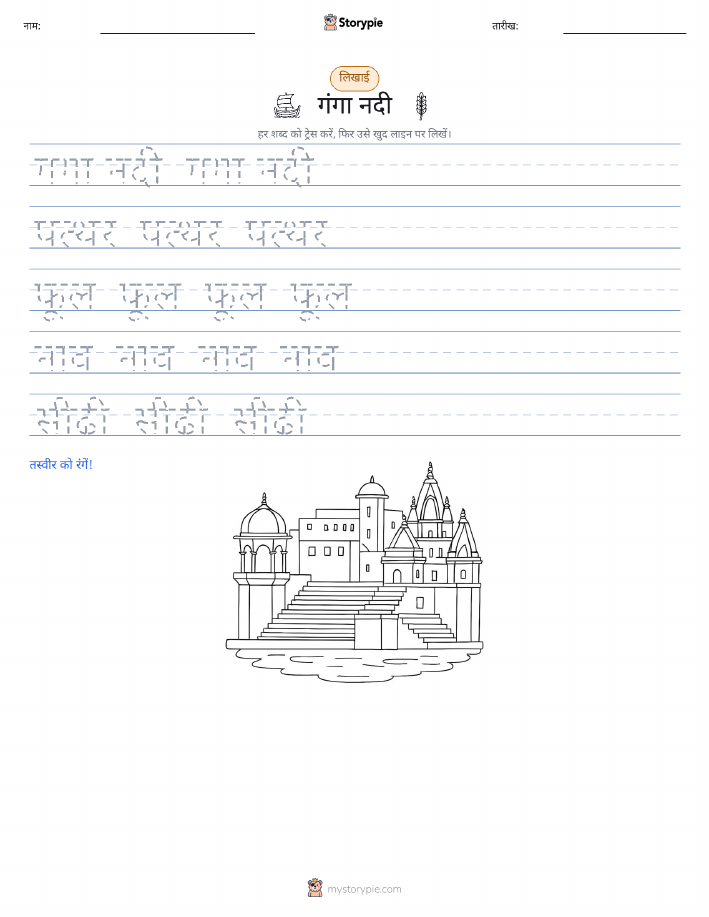 नाम:
Storypie
तारीख:
लिखाई
गंगा नदी
हर शब्द को ट्रेस करें, फिर उसे खुद लाइन पर लिखें।
गंगा नदी गंगा नदी
पत्थर पत्थर पत्थर
फूल फूल फूल फूल
नाव नाव नाव नाव
सीढ़ी सीढ़ी सीढ़ी
तस्वीर को रंगें!
mystorypie.com